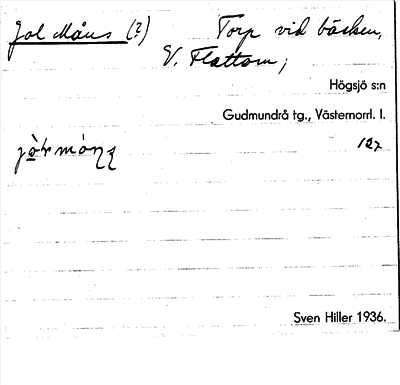 Jol Måns (?) Torp vid bäcken,
V. Flattom;
Högsjö s:n
Gudmundrå tg., Västernorrl. l.
127
Sven Hiller 1936.